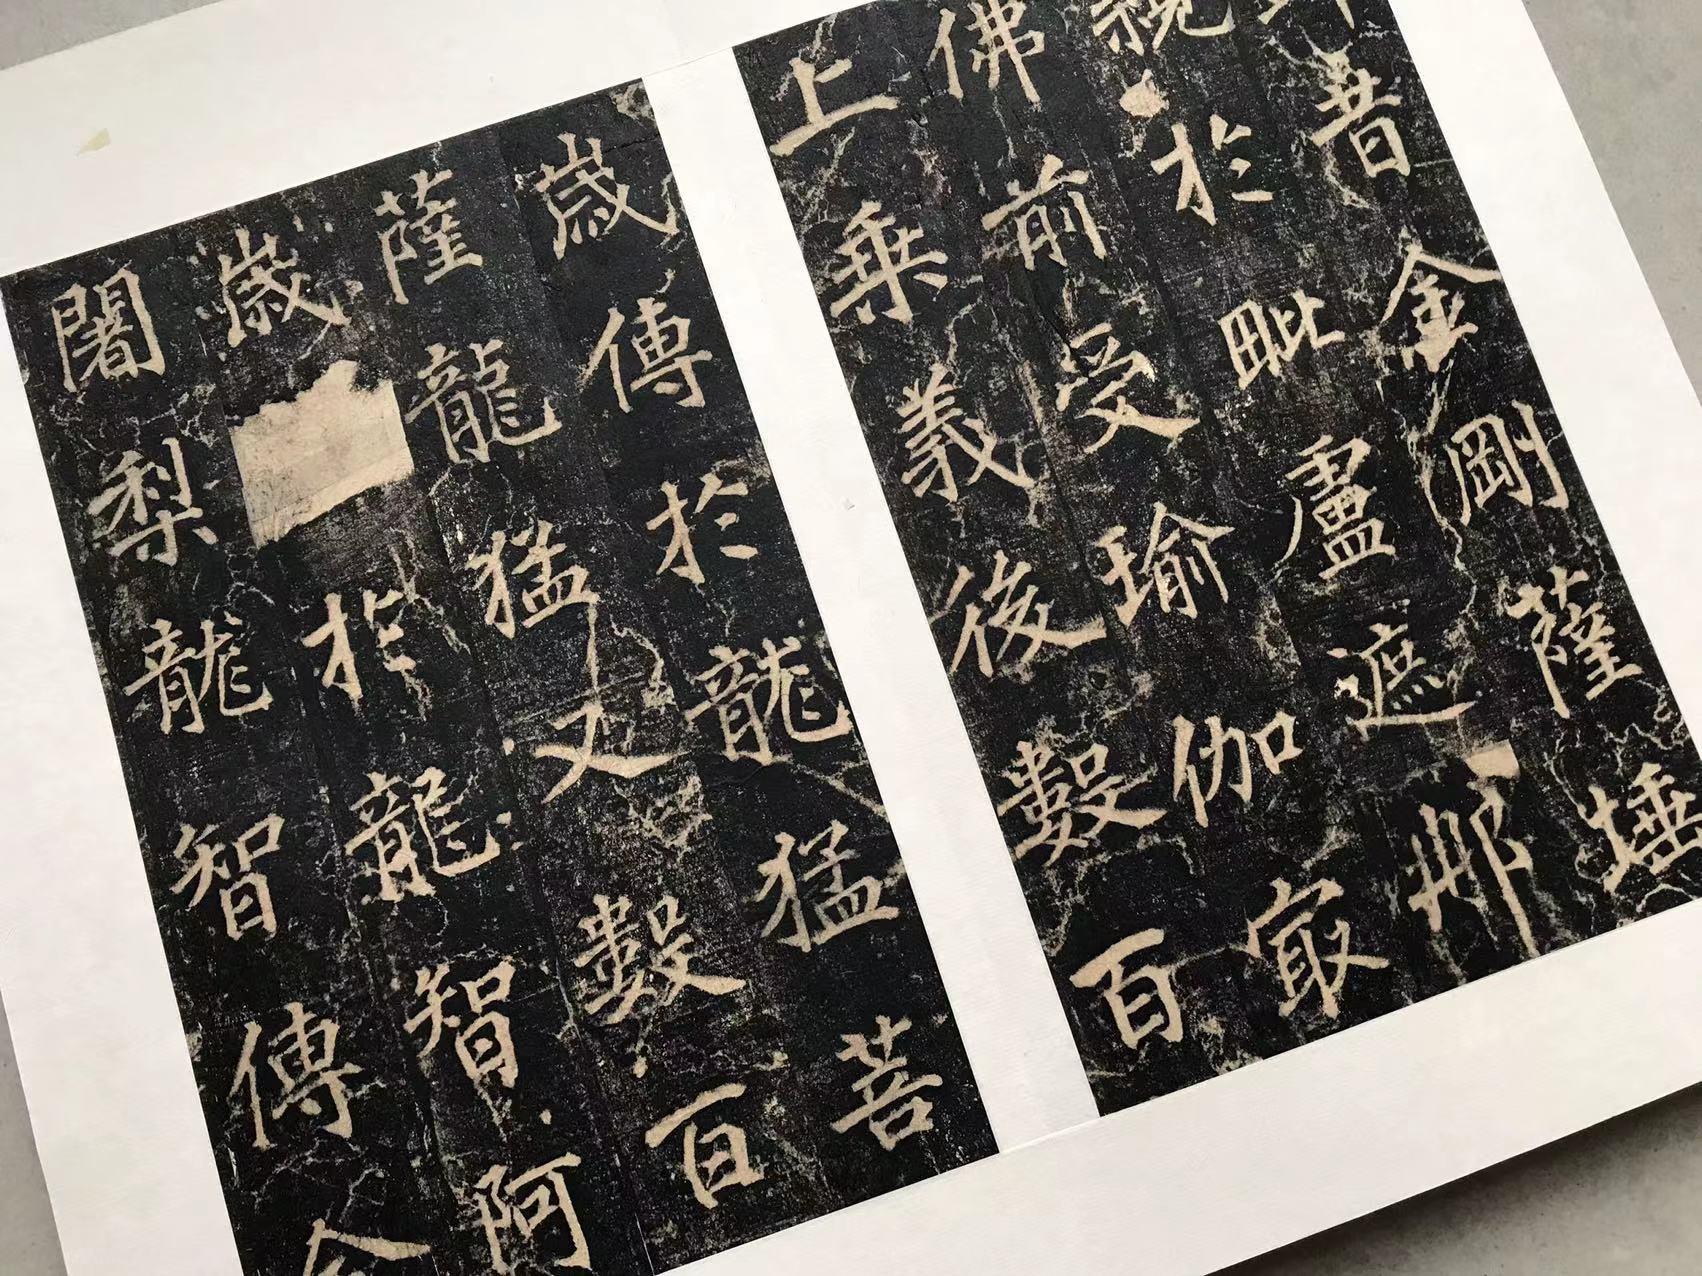 昔金剛薩埵
親於毗盧遮那
佛前受瑜伽最
上乘義後數百
歲傳於龍猛菩
薩龍猛又數百
歲於龍智阿
闍梨龍智傳金